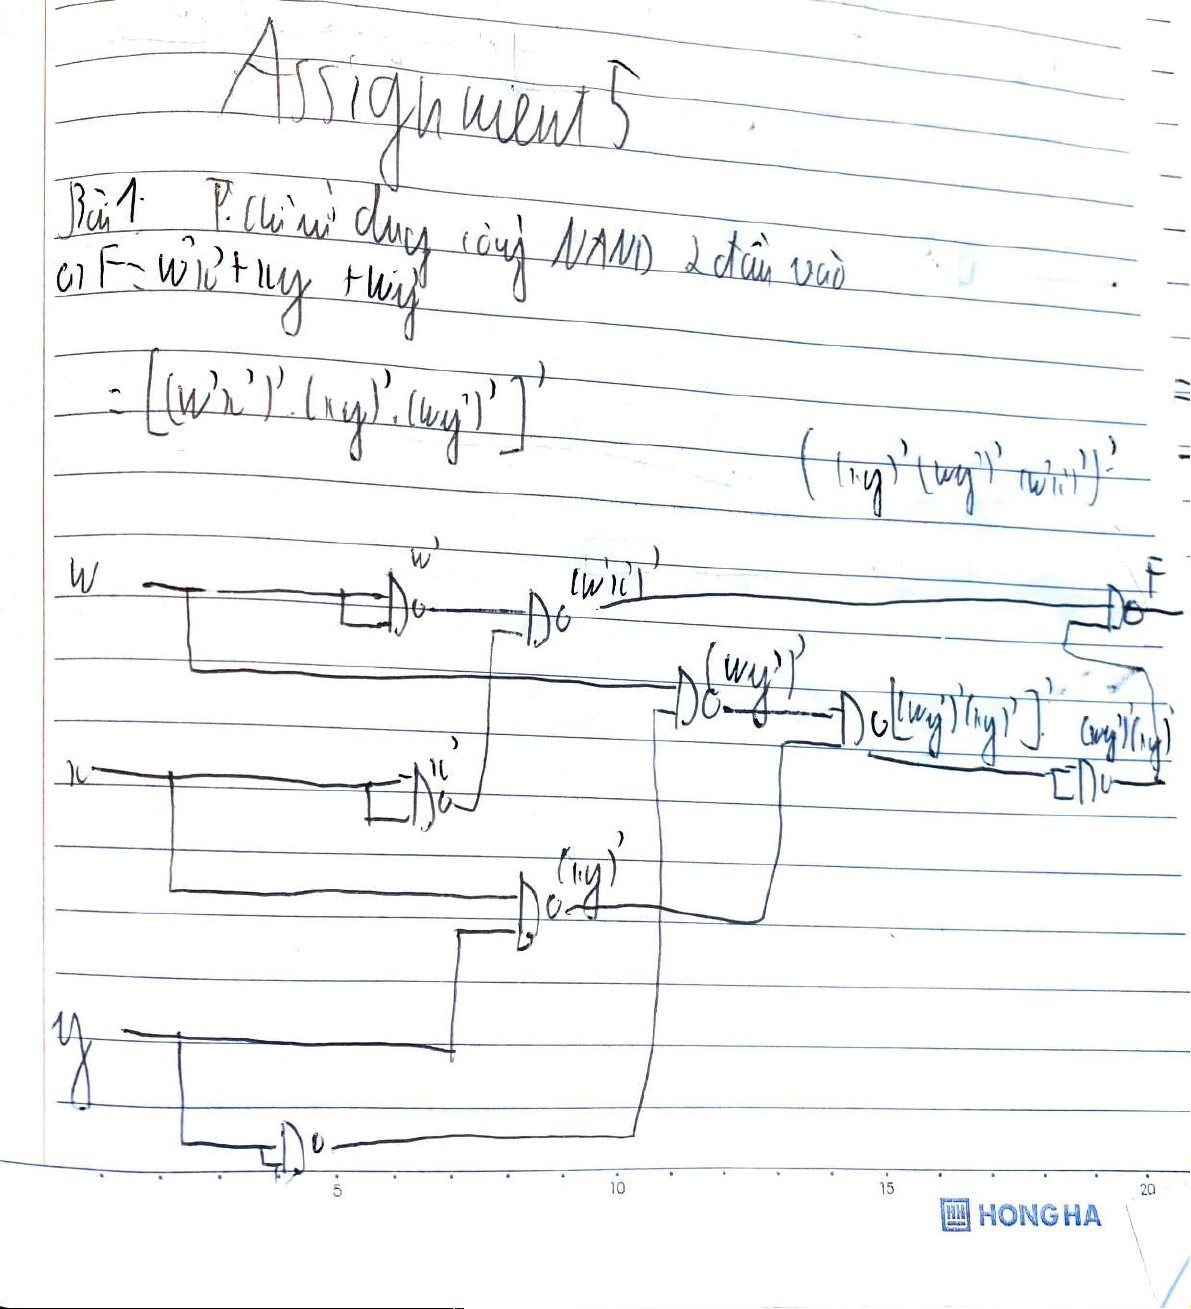 Assignment 5
Bài 1. P. Chỉ sử dụng cổng NAND 2 đầu vào
a) F = w'x' + xy + wy'
= [(w'x')'.(xy)'.(wy')']'
((xy)'(wy')'(w'x')')'
w w' (w'x')' F
(wy')' [(wy')'(xy)']' (wy')'(xy)'
x x'
(xy)'
y
5 10 15 20
HONG HA